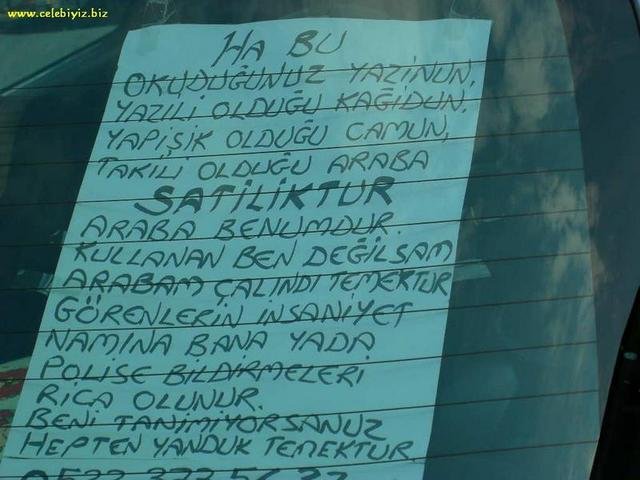 www.celebiyiz.biz
HA BU
OKUDUĞUNUZ YAZİNUN,
YAZILI OLDUĞU KAĞIDUN,
YAPIŞIK OLDUĞU CAMUN,
TAKILI OLDUĞU ARABA
SATILIKTUR
ARABA BENUMDUR.
KULLANAN BEN DEĞİLSAM
ARABAM ÇALINDI TEMEKTUR
GÖRENLERİN İNSANİYET
NAMINA BANA YADA
POLİSE BİLDİRMELERİ
RİCA OLUNUR.
BENİ TANIMIYORSANUZ
HEPTEN YANDUK TEMEKTUR.